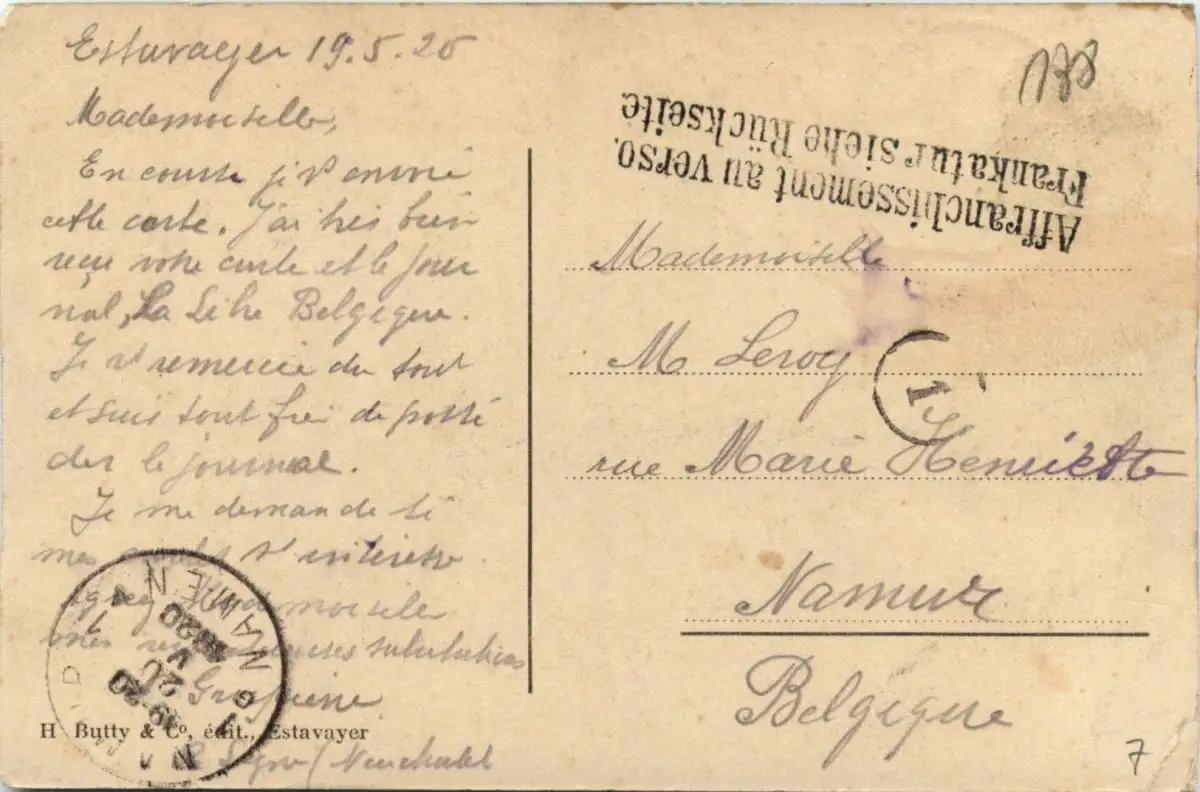 Estavayer 19.5.20
Mademoiselle,
En courte je v^s envoie
cette carte. J'ai très bien
reçu votre carte et le jour
nal, La Libre Belgique.
Je v^s remercie du tout
et suis tout fier de possé
der le journal.
Je me demande si
mes v^s intéresse
Mademoiselle
mes salutations
H Butty & C^o, édit., Estavayer
(Neuchatel
178
Affranchissement au verso.
Frankatur siehe Rückseite
Mademoiselle
M Leroy
1
rue Marie Henriette
Namur
Belgique
7
NAMUR
NAMEN
1920